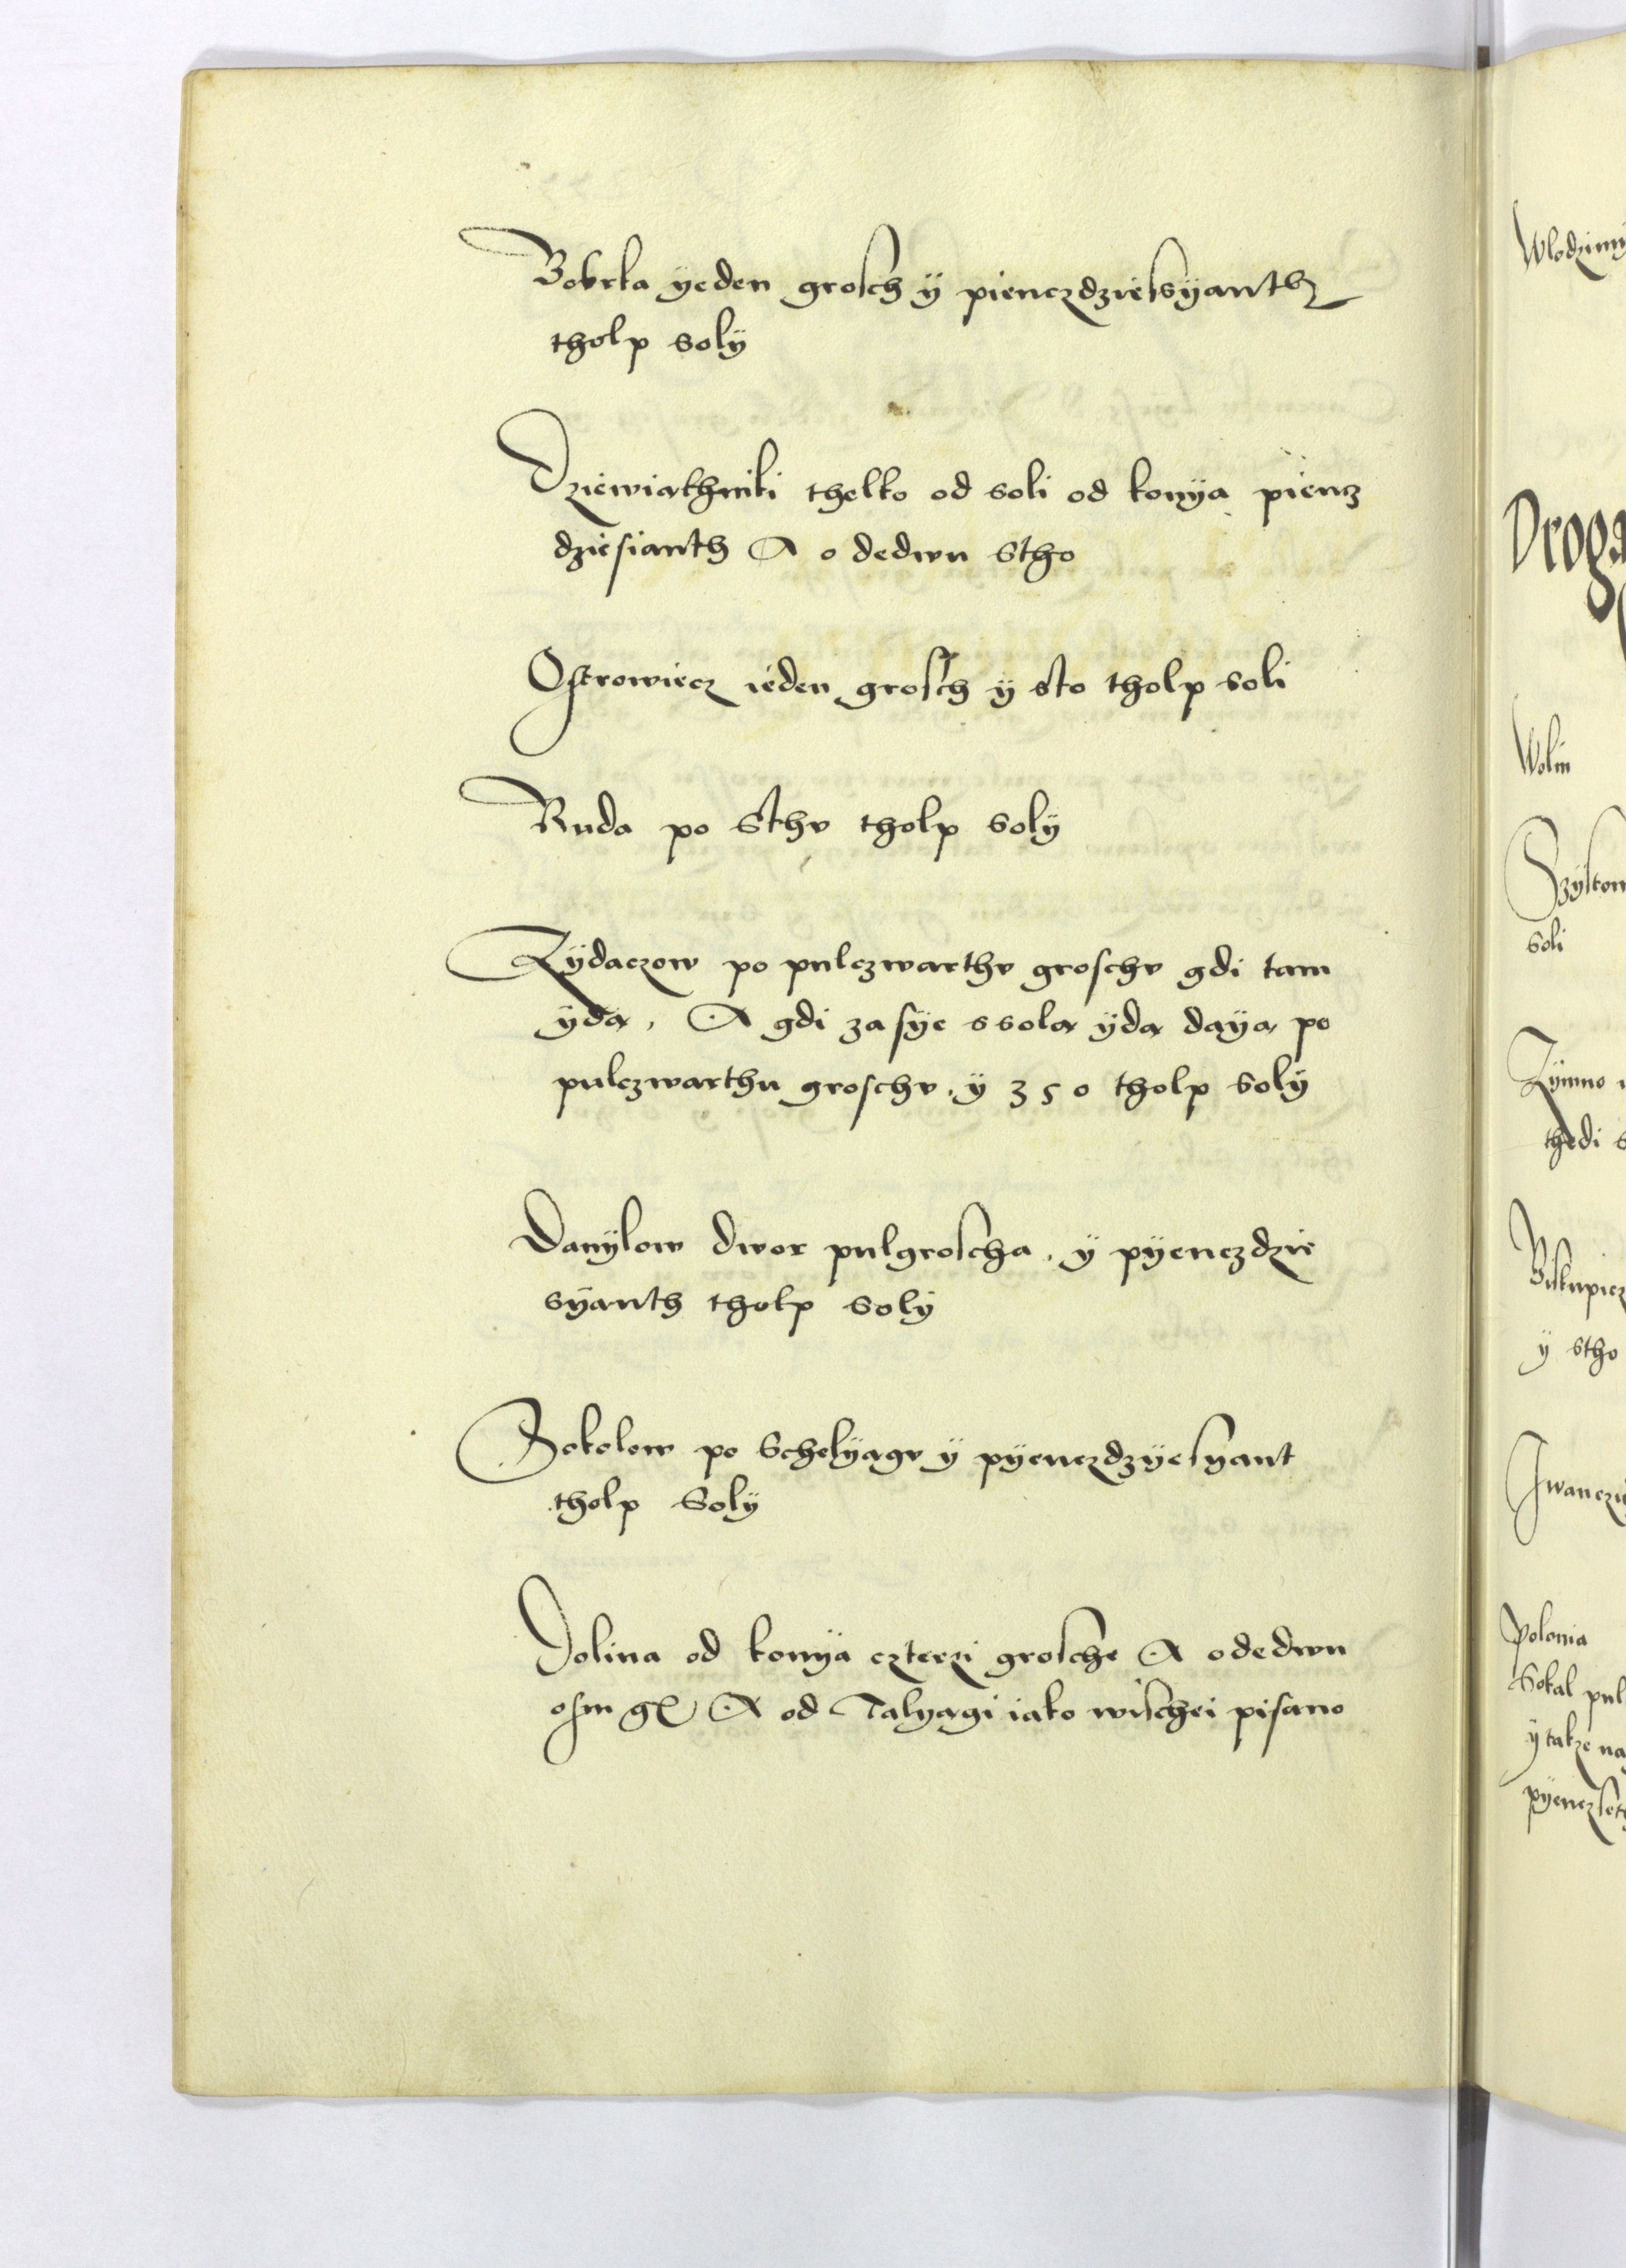 Bobrka ÿeden grosch ÿ pienczdziesÿanth
tholp solÿ
Dziewiathniki thelko od soli od konÿa piencz
dziesianth A o dedwu stho
Ostrowiecz ieden grosch ÿ sto tholp soli
Ruda po sthv tholp solÿ
Zÿdaczow po pulczwarthv groschv gdi tam
ÿda, A gdi zasÿe ssola ÿda daÿa po
pulczwarthu groschv. ÿ 350 tholp solÿ
Danÿlow dwor pulgroscha. ÿ pÿenczdzie
sÿanth tholp solÿ
Sokolow po schelÿagv ÿ pÿenczdzÿesÿant
tholp solÿ
Dolina od konÿa czterzi grosche A odedwu
osm gr A od Talyagi iako wischei pisano
Wlodzimÿ
Droga
Wolin
soli
Zÿmno
thedi s
Biskupicz
ÿ stho
Iwanczi
Polonia
Sokal pul
ÿ takze na